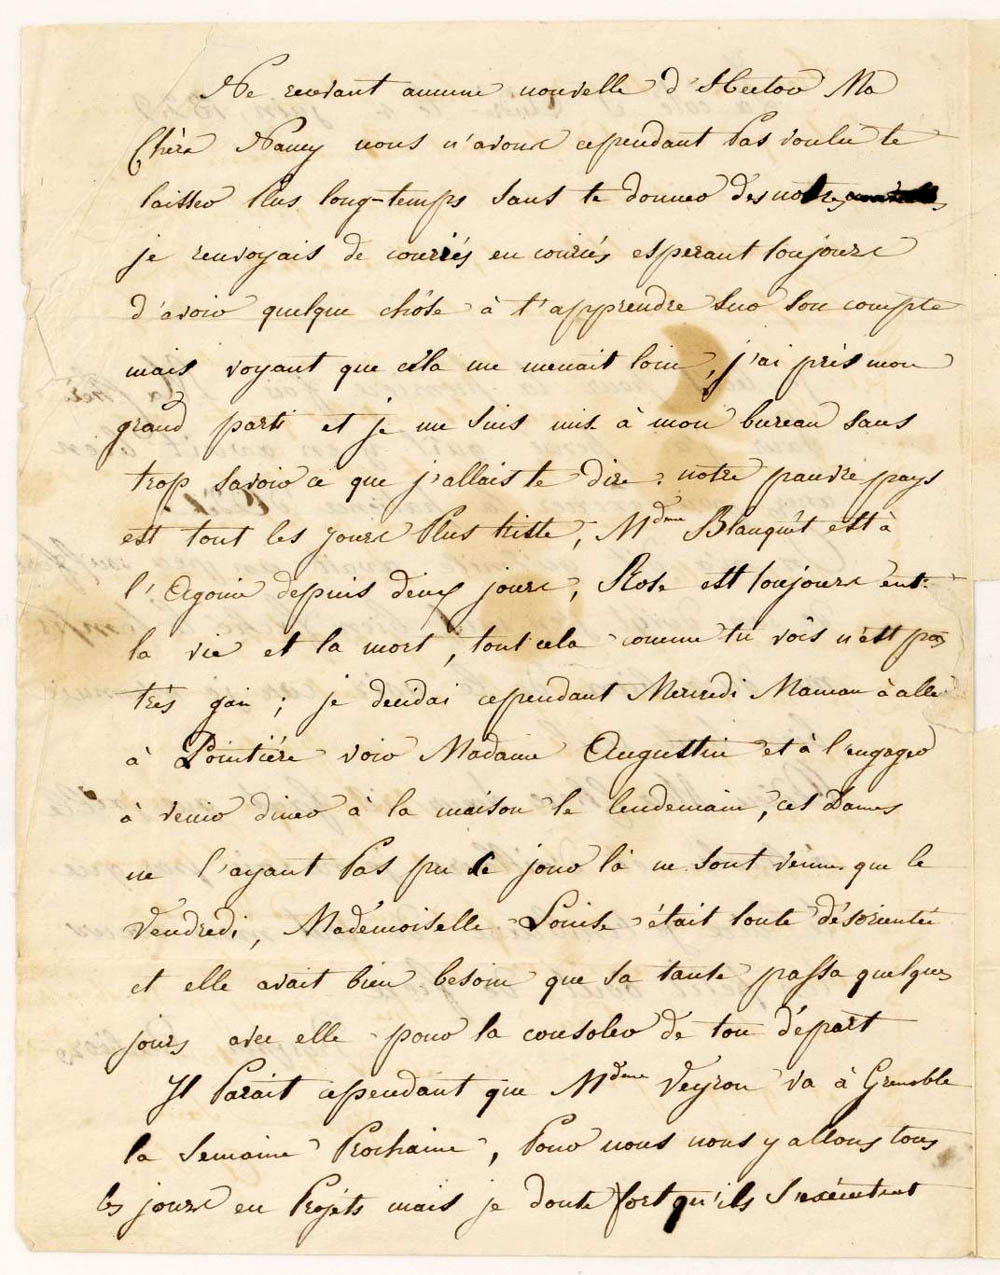 Ne recevant aucune nouvelle d'Hector Ma
Chère Nancy nous n'avons cependant Pas voulu te
laisser Plus long-temps sans te donner des notres
je renvoyais de courriés en couriés esperant toujours
d'avoir quelque chôse à t'apprendre sur son compte
mais voyant que cela me menait loin, j'ai pris mon
grand parti et je me suis mis à mon bureau sans
trop savoir ce que j'allais te dire. notre pauvre pays
est tout les jours Plus triste, Mdme Blanquêt est à
l'Agonie depuis deux jours, Rose est toujours ent.
la vie et la mort, tout cela comme tu vois n'est pas
très gai; je decidai cependant Mercredi Maman à allé
à Pointière voir Madame Augustin et à l'engager
à venir diner à la maison le lendemain, ces Dames
ne l'ayant Pas pu le jour là ne sont venue que le
Vendredi, Mademoiselle Louise était toute désorientée
et elle avait bien besoin que sa tante passa quelques
jours avec elle pour la consoler de ton départ
Il Parait cependant que Mdme Veyron va à Grenoble
la Semaine Prochaine, Pour nous nous y allons tous
les jours en Projèts mais je doute fort qu'ils s'exécutent